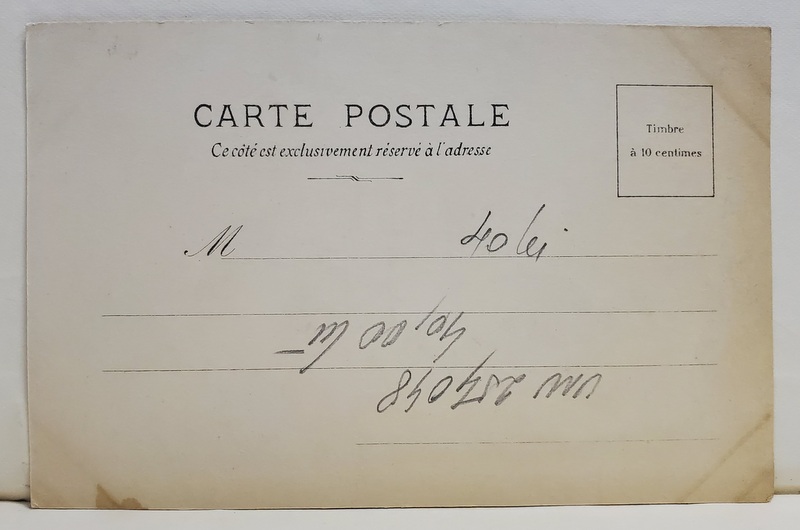 CARTE POSTALE
Ce côté est exclusivement réservé à l'adresse
Timbre
à 10 centimes
M
40 lei
40,00 lei